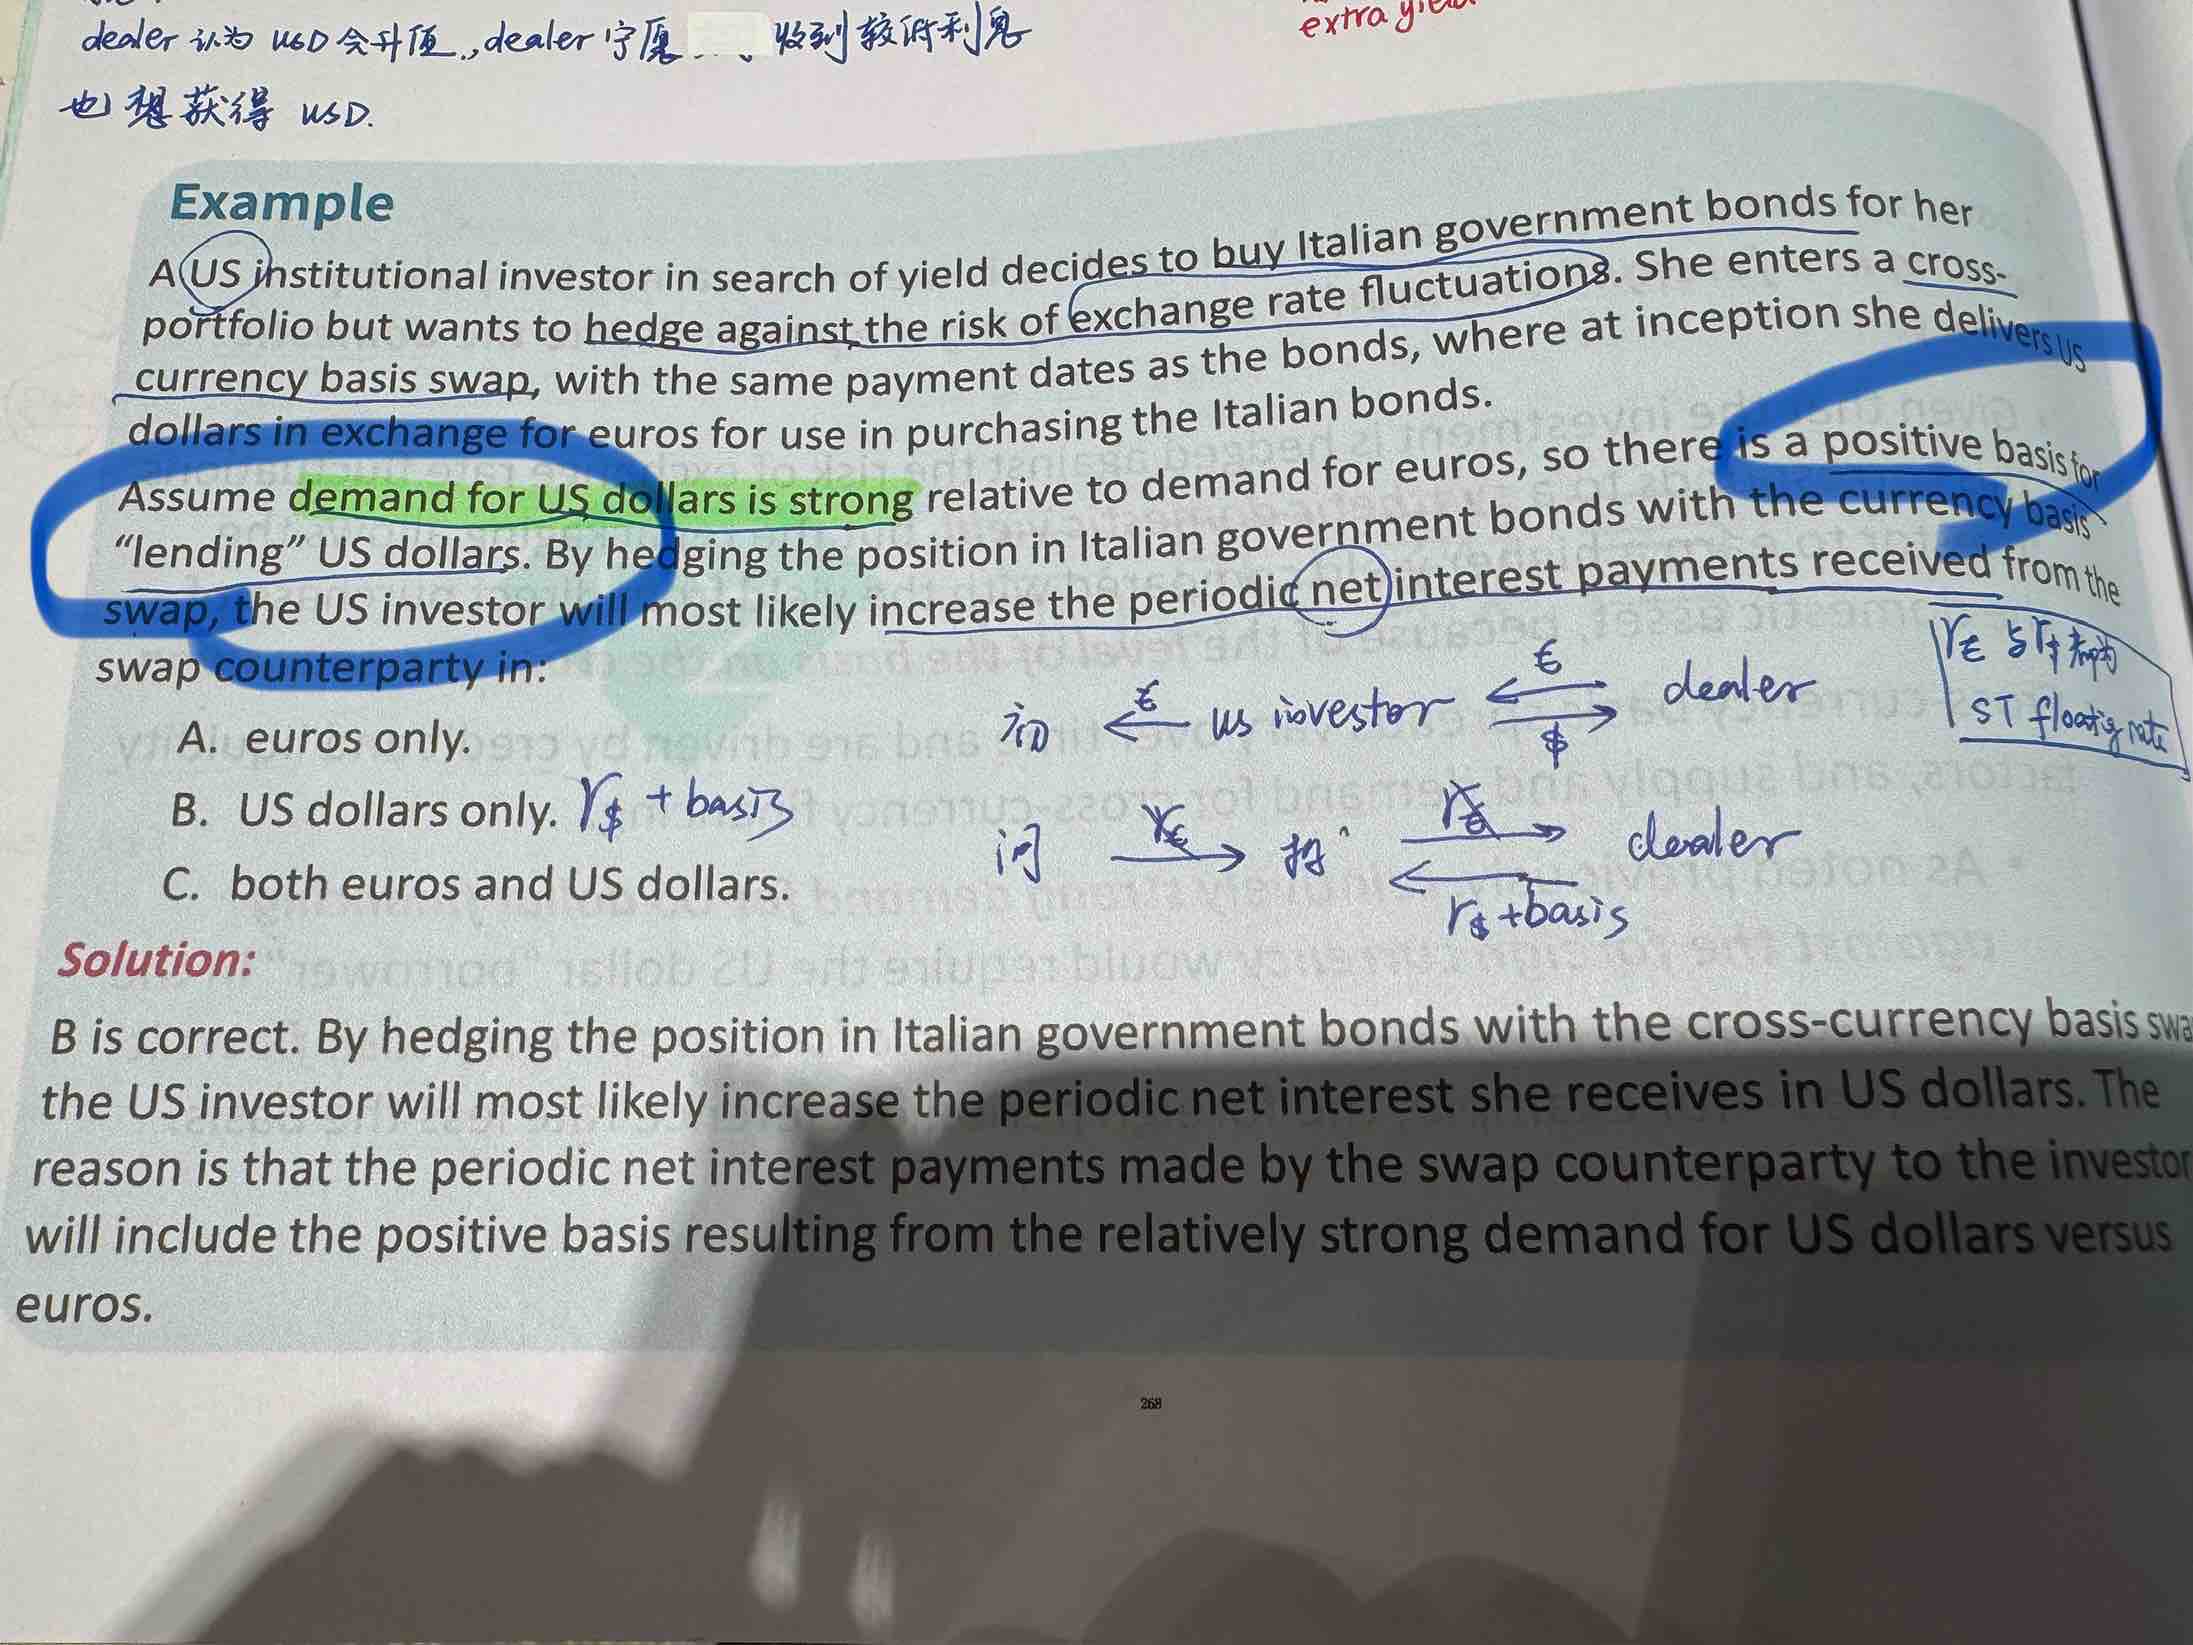 extra yield
dealer 认为 USD 会升值., dealer 宁愿 收到较低利息
也想获得 USD.
Example
A US institutional investor in search of yield decides to buy Italian government bonds for her
portfolio but wants to hedge against the risk of exchange rate fluctuations. She enters a cross-
currency basis swap, with the same payment dates as the bonds, where at inception she delivers US
dollars in exchange for euros for use in purchasing the Italian bonds.
Assume demand for US dollars is strong relative to demand for euros, so there is a positive basis for
“lending” US dollars. By hedging the position in Italian government bonds with the currency basis
swap, the US investor will most likely increase the periodic net interest payments received from the
swap counterparty in:
r€ 与 r$ 都为
ST floating rate
初 € us investor € $ dealer
A. euros only.
B. US dollars only. r$ + basis
间 r€ 投 r€ dealer
r$ + basis
C. both euros and US dollars.
Solution:
B is correct. By hedging the position in Italian government bonds with the cross-currency basis swa
the US investor will most likely increase the periodic net interest she receives in US dollars. The
reason is that the periodic net interest payments made by the swap counterparty to the investor
will include the positive basis resulting from the relatively strong demand for US dollars versus
euros.
268